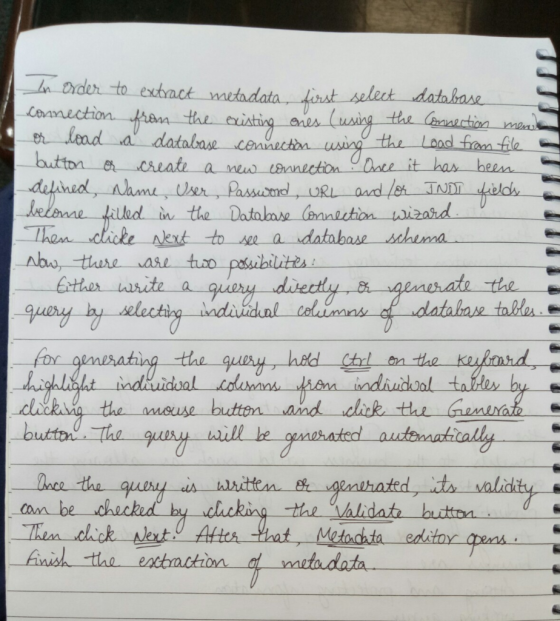 In order to extract metadata, first select database
connection from the existing ones (using the Connection menu
or load a database connection using the Load from file
button or create a new connection. Once it has been
defined, Name, User, Password, URL and/or JNDI fields
become filled in the Database Connection wizard.
Then clicke Next to see a database schema.
Now, there are two possibilities:
Either write a query directly, or generate the
query by selecting individual columns of database tables.
For generating the query, hold Ctrl on the keyboard,
highlight individual columns from individual tables by
clicking the mouse button and click the Generate
button. The query will be generated automatically.
Once the query is written or generated, its validity
can be checked by clicking the Validate button.
Then click Next. After that, Metadata editor opens.
Finish the extraction of metadata.